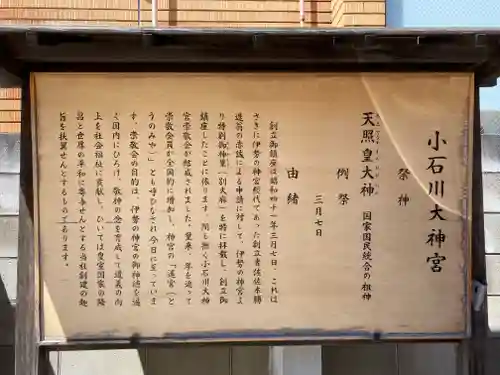 小石川大神宮
祭神
天照皇大神 国家国民統合の祖神
例祭
三月七日
由緒
創立御鎮座は昭和四十一年三月七日、これは
さきに伊勢の神宮総代であった創立者佐佐木勝
造翁の赤誠による申請に対して、伊勢の神宮よ
り特別御神璽(別大麻)を特に拝戴し、創立御
鎮座したことに依ります。間も無く小石川大神
宮崇敬会が結成されました。爾来、年を追って
崇敬会員が全国的に増加し、神宮の「遥宮」(と
うのみや)」とも呼びなされ今日に至っていま
す。崇敬会の目的は、伊勢の神宮の御神徳を遍
く国内にひろげ、敬神の念を育成して道義の向
上を社会福祉に貢献し、ひいては皇室国家の隆
昌と世界の平和に専ら寄与せんとする当社創建の趣
旨を扶翼せんとするものであります。